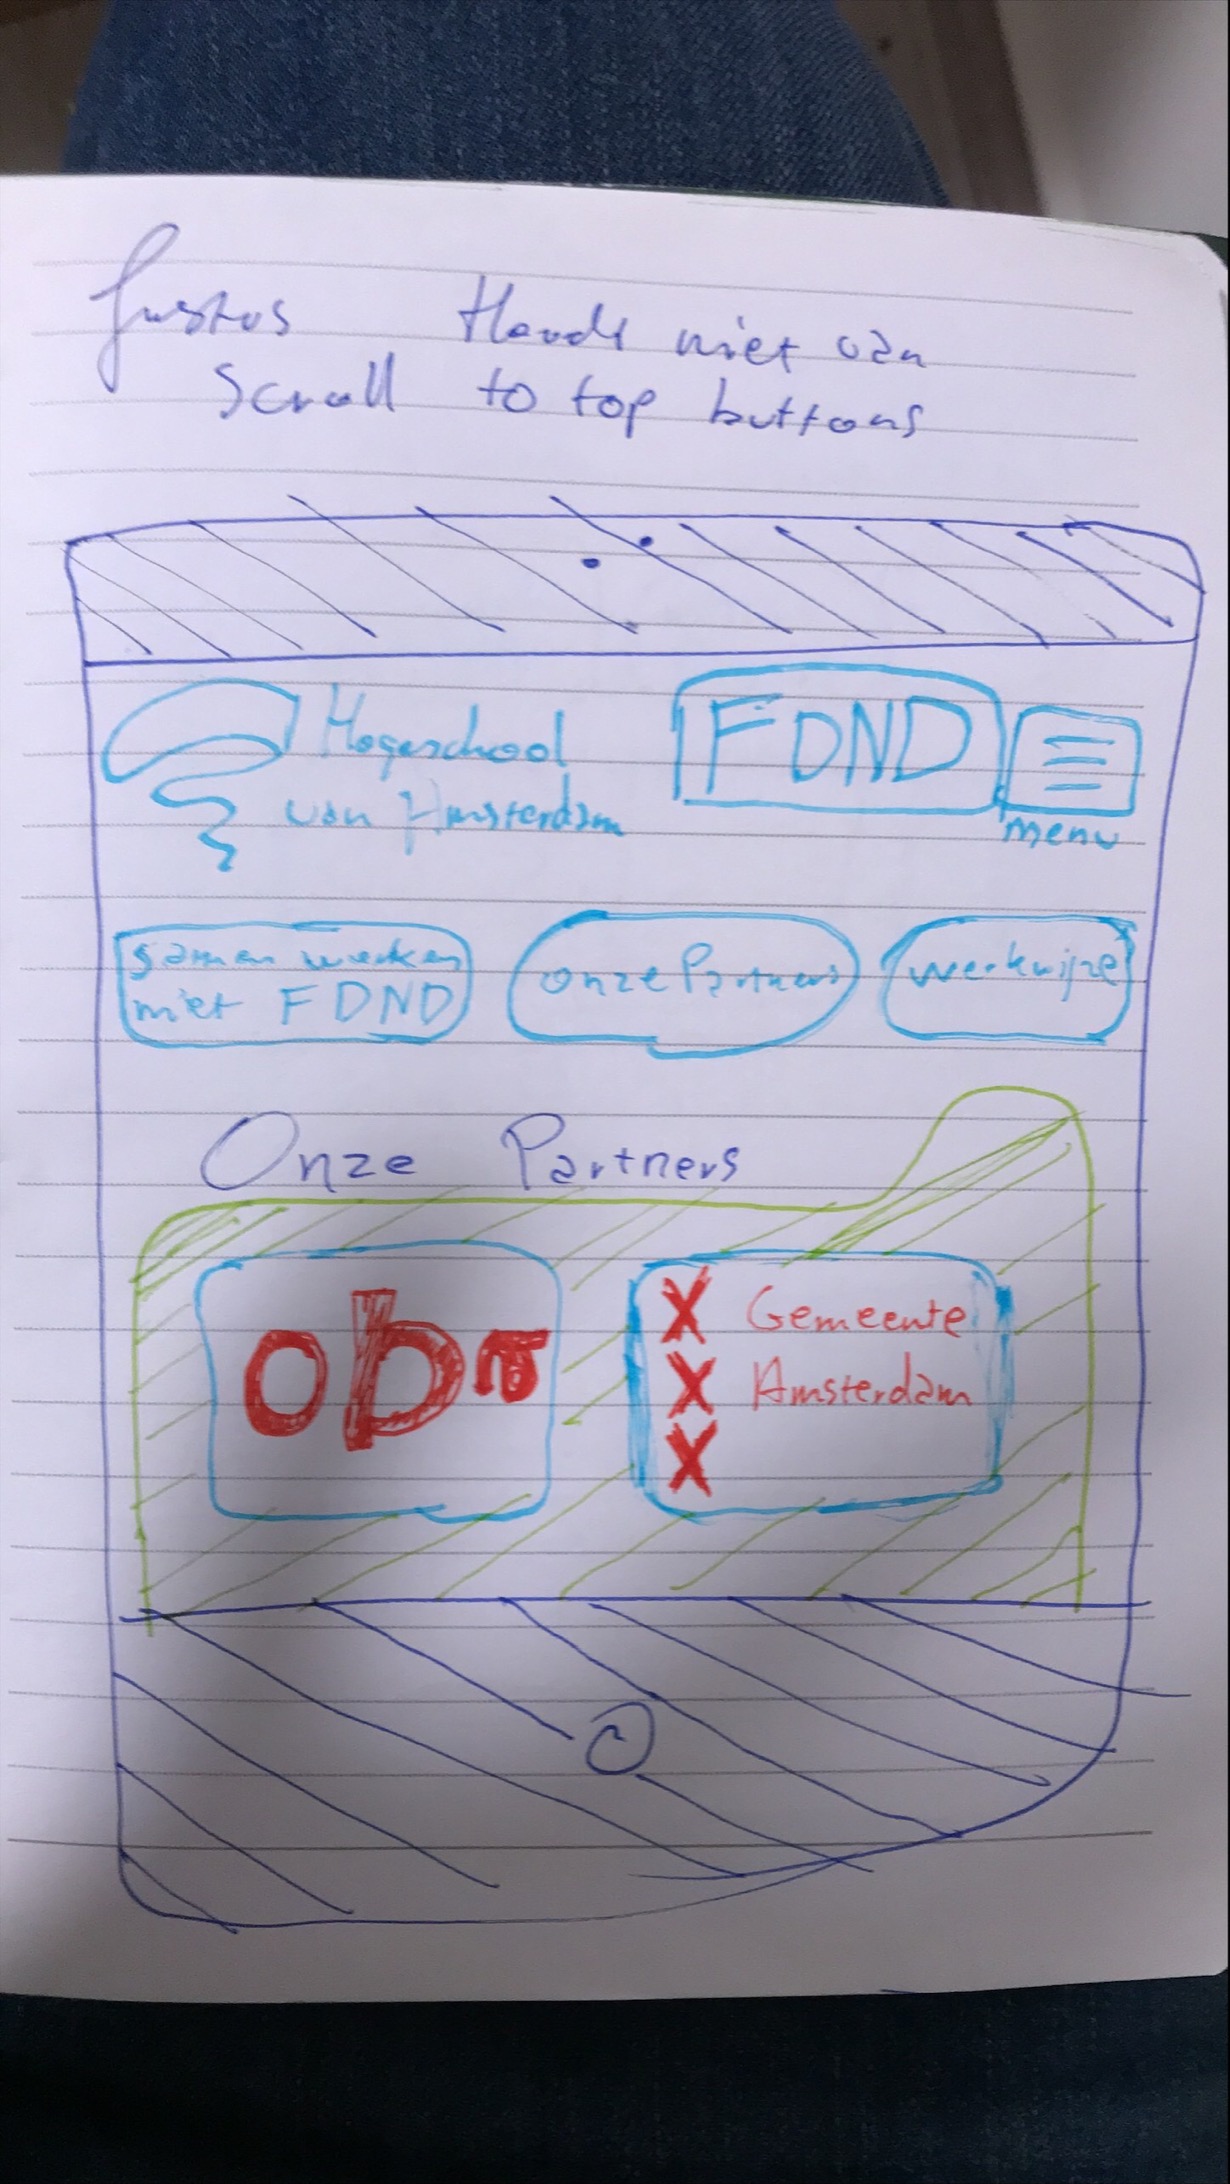 Justus Houdt niet van
Scroll to top buttons
Hogeschool
van Amsterdam
FDND
menu
samen werken
met FDND
onze Partners
werkwijze
Onze Partners
oba
X Gemeente
X Amsterdam
X